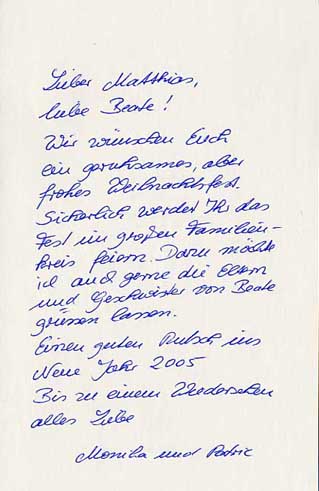 Lieber Matthias,
liebe Beate!
Wir wünschen Euch
ein geruhsames, aber
frohes Weihnachtsfest.
Sicherlich werdet Ihr das
Fest im großen Familien-
kreis feiern. Dazu möchte
ich auch gerne die Eltern
und Geschwister von Beate
grüssen lassen.
Einen guten Rutsch ins
Neue Jahr 2005
Bis zu einem Wiedersehen
alles Liebe
Monika und Patric